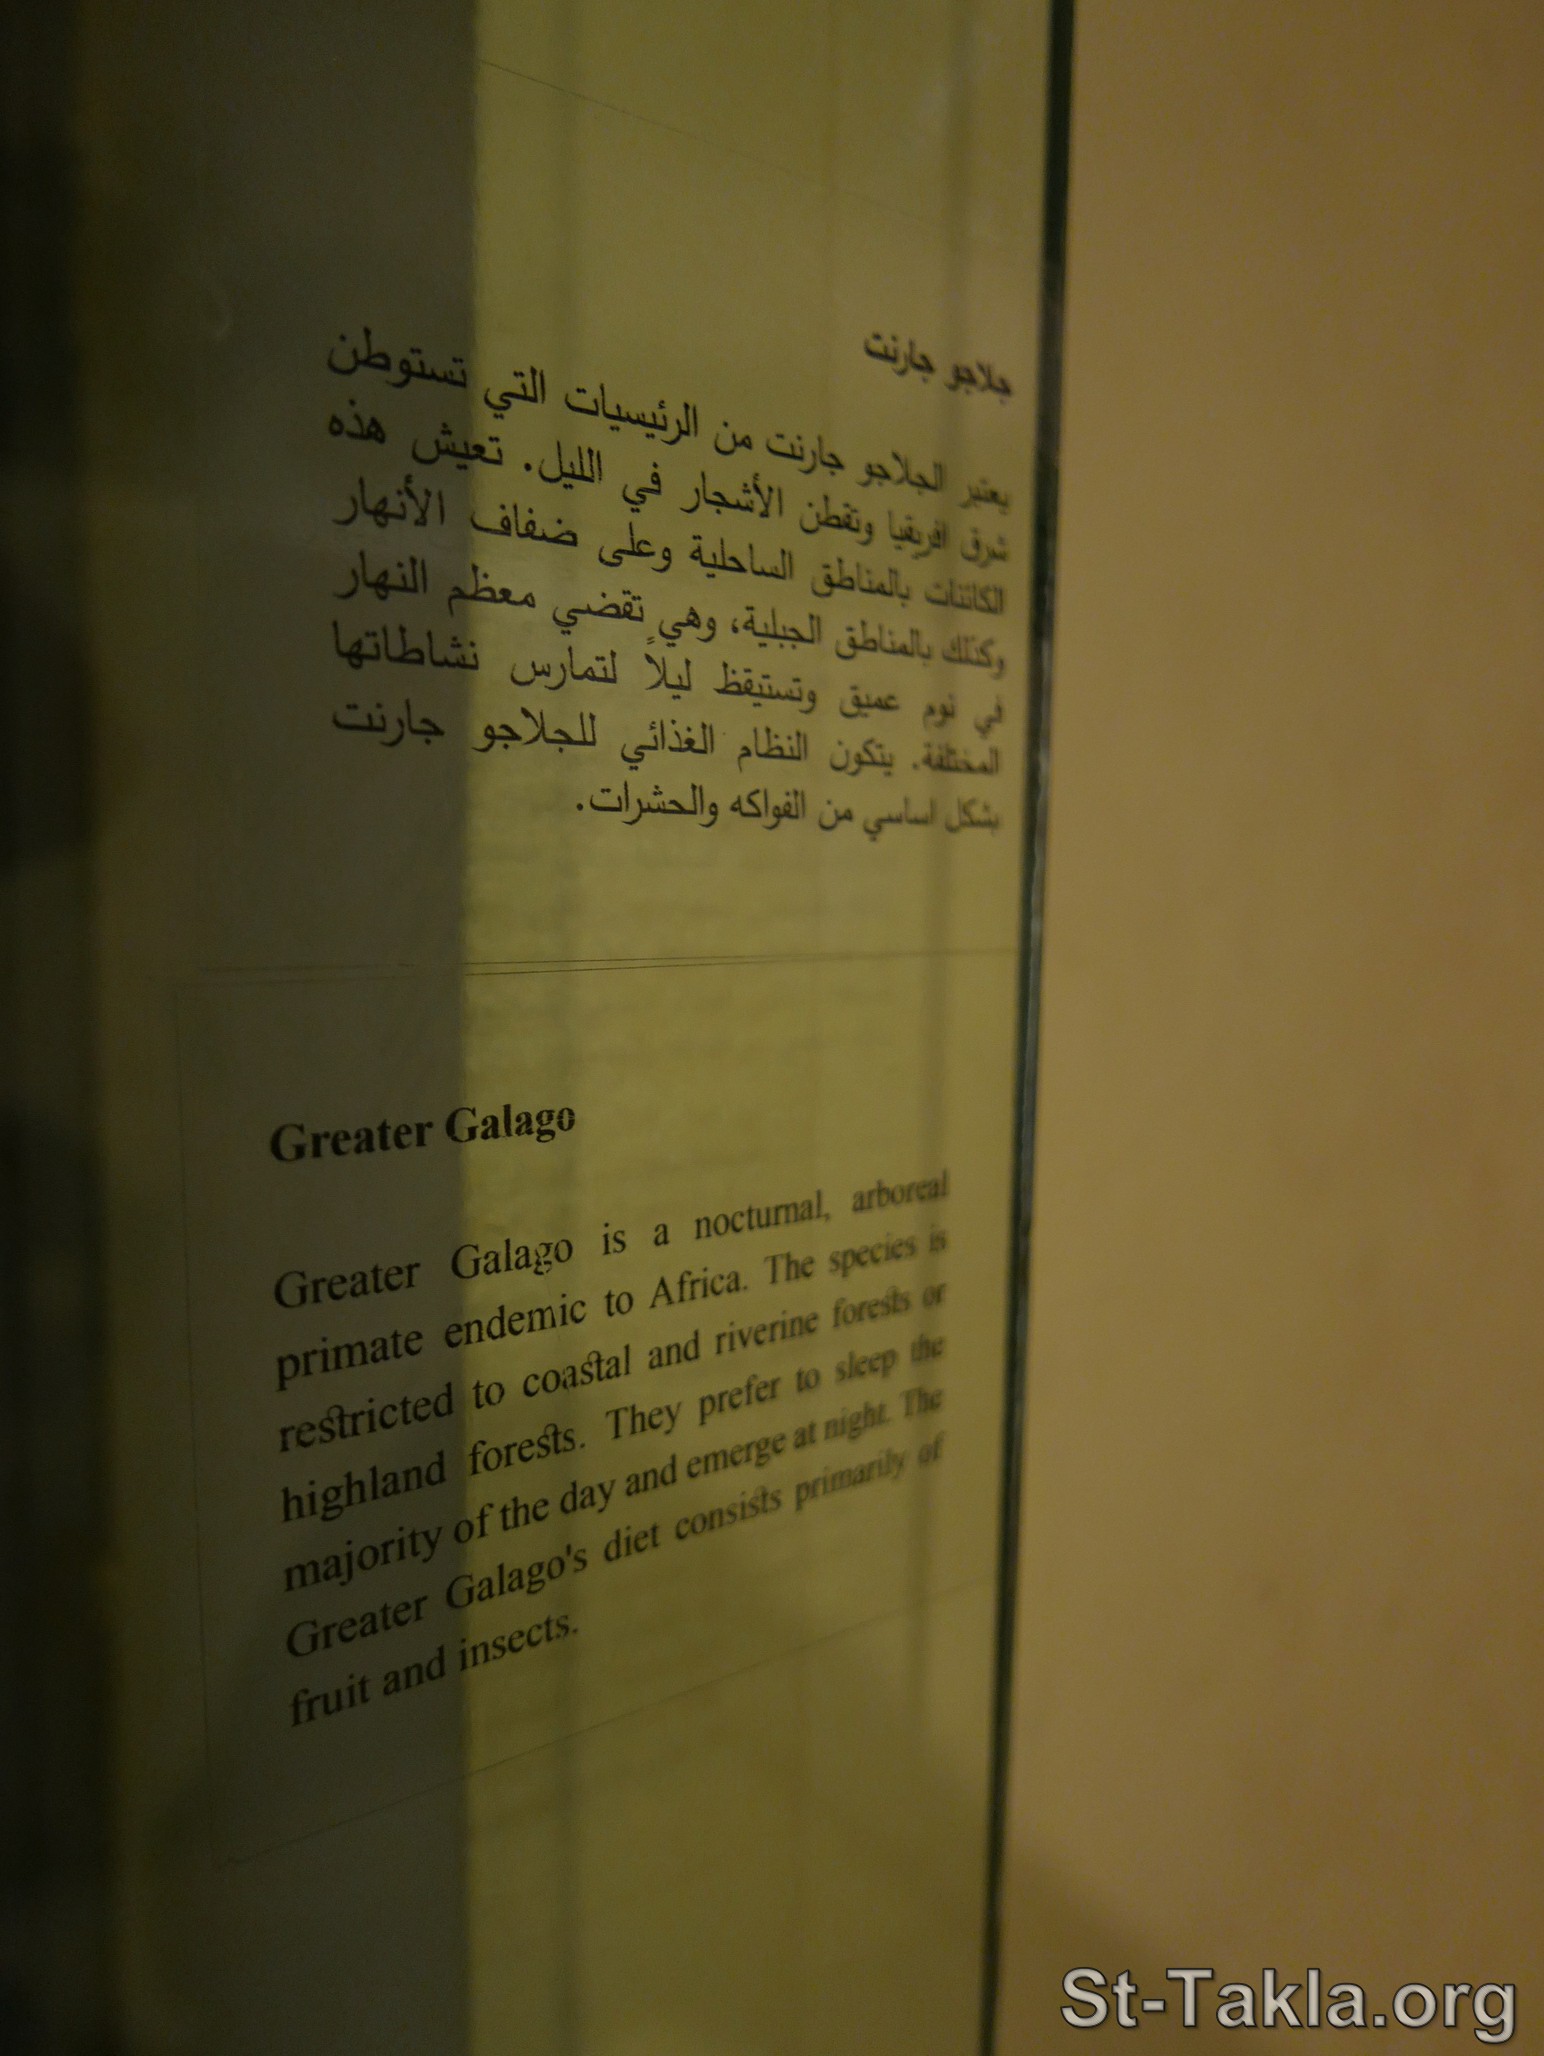 جلاجو جارنت
يعتبر الجلاجو جارنت من الرئيسيات التي تستوطن
شرق افريقيا وتقطن الأشجار في الليل. تعيش هذه
الكائنات بالمناطق الساحلية وعلى ضفاف الأنهار
وكذلك بالمناطق الجبلية، وهي تقضي معظم النهار
في نوم عميق وتستيقظ ليلاً لتمارس نشاطاتها
المختلفة. يتكون النظام الغذائي للجلاجو جارنت
بشكل اساسي من الفواكه والحشرات.
Greater Galago
Greater Galago is a nocturnal, arboreal
primate endemic to Africa. The species is
restricted to coastal and riverine forests or
highland forests. They prefer to sleep the
majority of the day and emerge at night. The
Greater Galago's diet consists primarily of
fruit and insects.
St-Takla.org